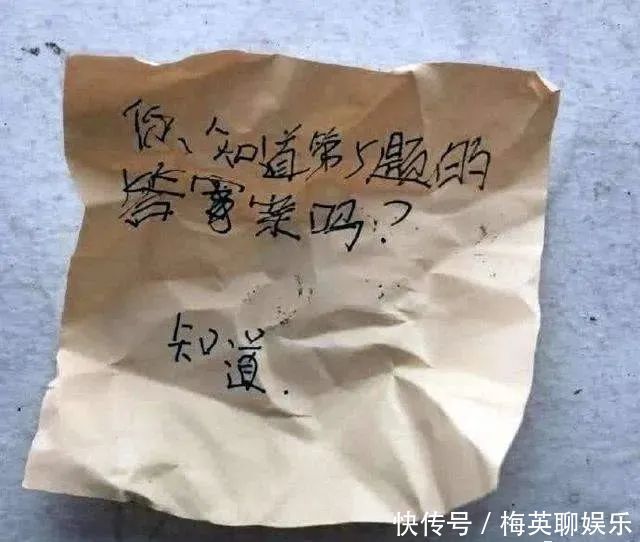 你知道第5题的
答案案吗？
知道.
快传号 / 梅英聊娱乐